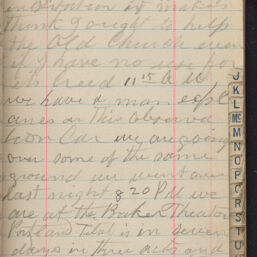 think I ought to help
the Old Church even
if I have no use for
its creed 11 15 A M
we have a man expl
aines on this observa
tion Car we are going
over some of the same
ground we went over
last night 8 20 P M we
are at the Baker Theater
Portland Title is in seven
days in three acts and
J
K
L
Mc
M
N
O
P
Q
R
S
T
U